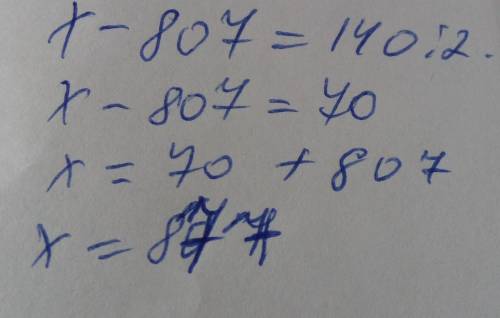 x - 807 = 140:2.
x - 807 = 70
x = 70 + 807
x = 877